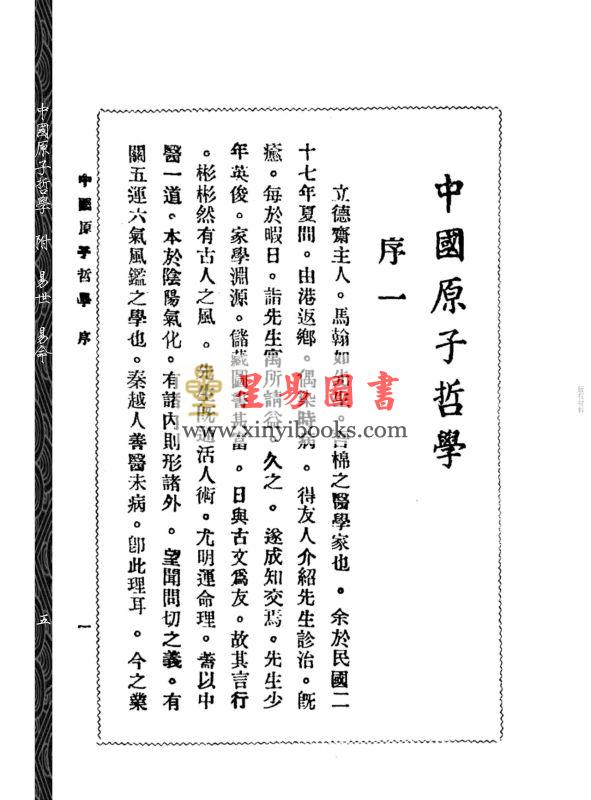 中國原子哲學
序一
立德齋主人。馬翰如先生。吾棉之醫學家也。余於民國二
十七年夏間。由港返鄉。偶染時病。得友人介紹先生診治。旣
癒。每於暇日。詣先生寓所請益。久之。遂成知交焉。先生少
年英俊。家學淵源。儲藏圖書甚富。日與古文爲友。故其言行
。彬彬然有古人之風。先生旣通活人術。尤明運命理。蓋以中
醫一道。本於陰陽氣化。有諸內則形諸外。望聞問切之義。有
關五運六氣風鑑之學也。秦越人善醫未病。卽此理耳。今之業
中國原子哲學 序
一
中國原子哲學 附 易世 易命
五
星易圖書
www.xinyibooks.com
版权材料